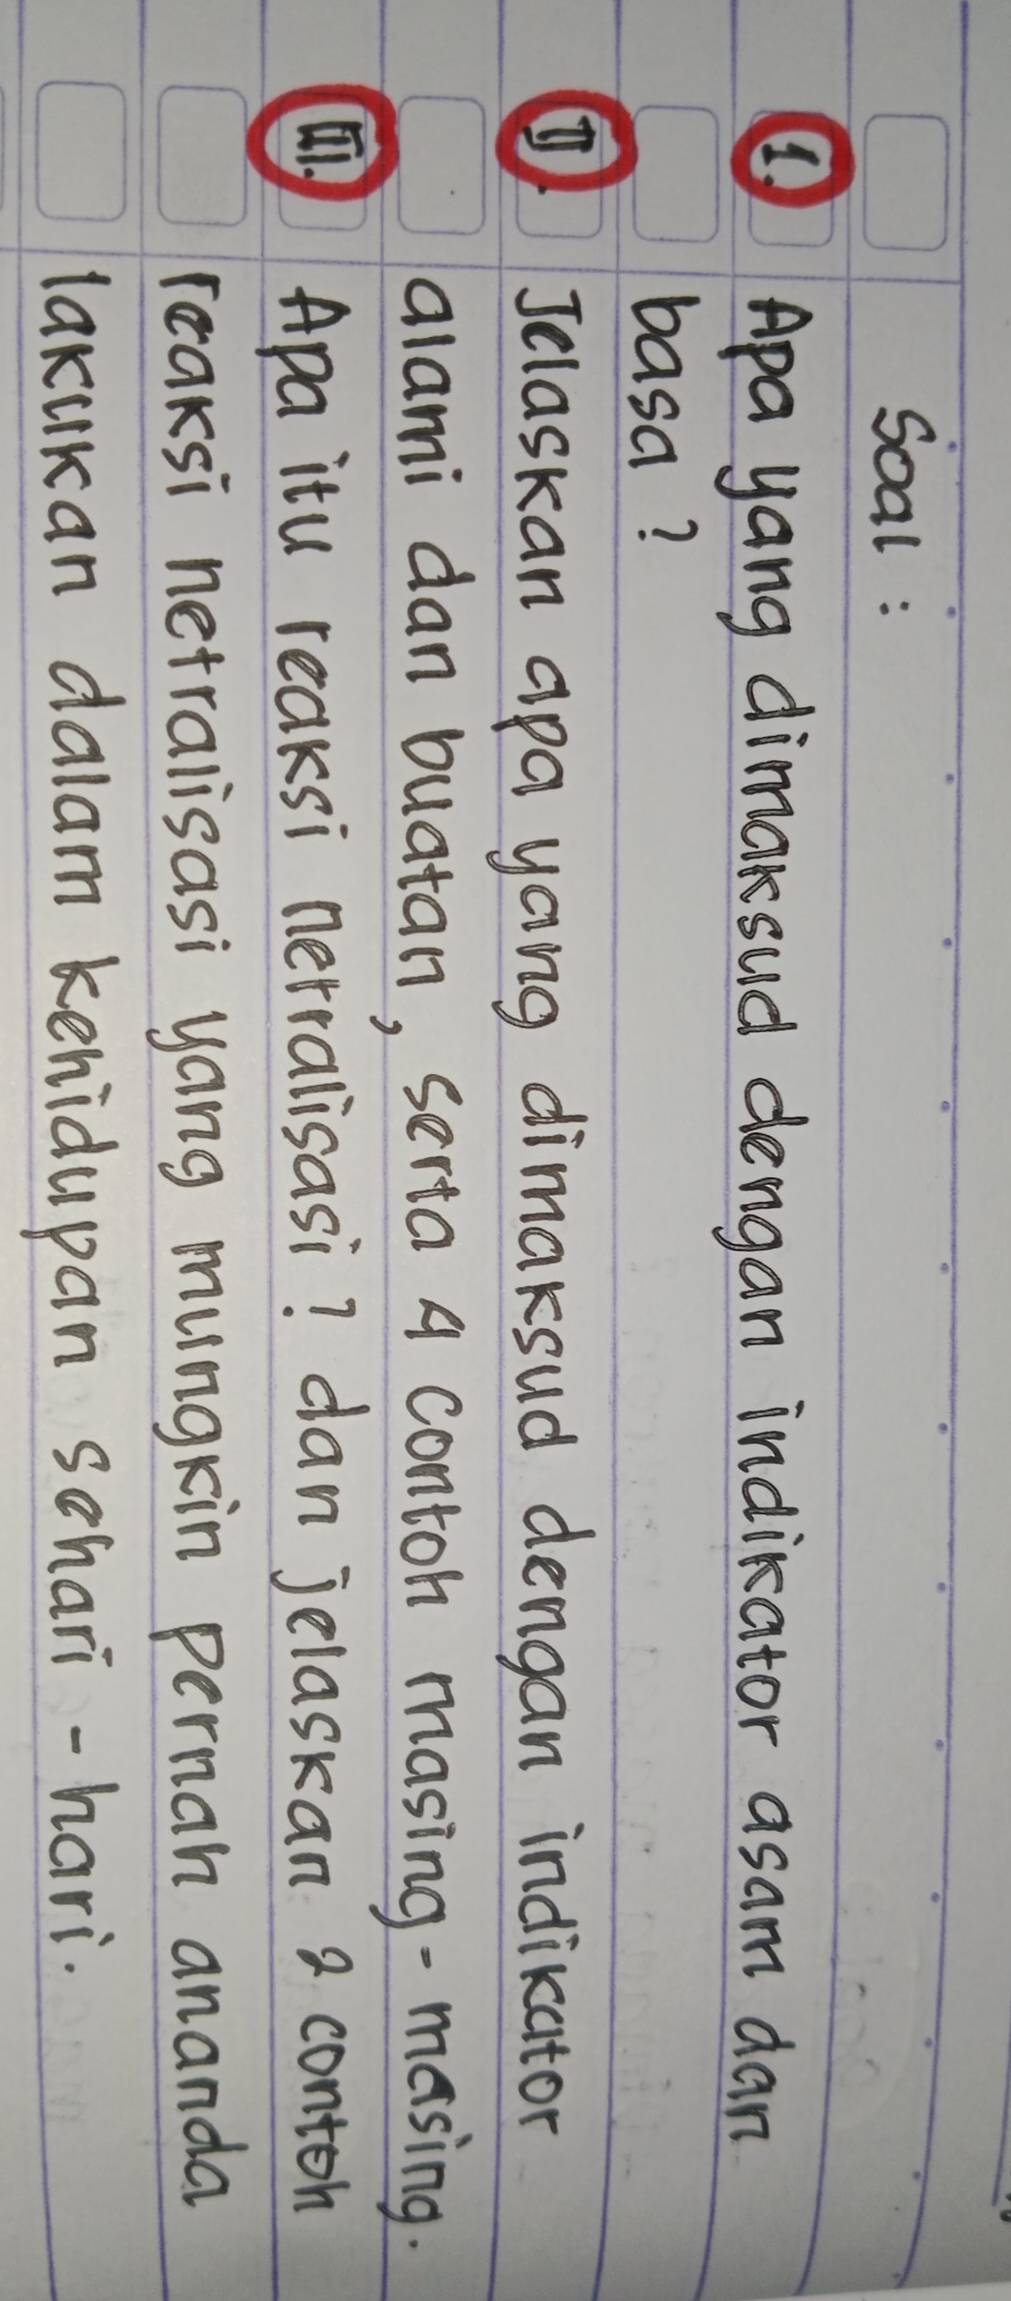 Soal :
1. Apa yang dimaksud dengan indikator asam dan
basa ?
II. Jelaskan apa yang dimaksud dengan indikator
alami dan buatan, serta 4 contoh masing-masing.
III. Apa itu reaksi netralisasi? dan jelaskan 2 contoh
reaksi netralisasi yang mungkin pernah ananda
lakukan dalam kehidupan sehari-hari.